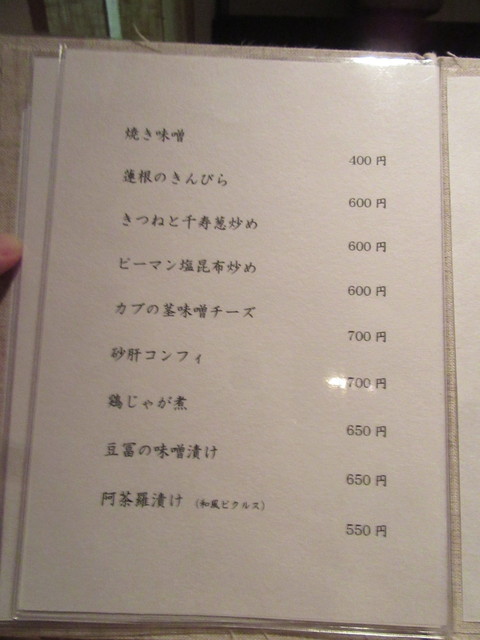 焼き味噌
400 円
蓮根のきんぴら
600 円
きつねと千寿葱炒め
600 円
ピーマン塩昆布炒め
600 円
カブの茎味噌チーズ
700 円
砂肝コンフィ
700 円
鶏じゃが煮
650 円
豆冨の味噌漬け
650 円
阿茶羅漬け (和風ピクルス)
550 円